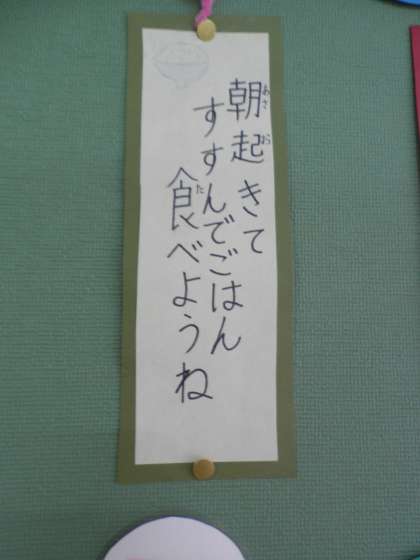 朝起きて
すすんでごはん
食べようね